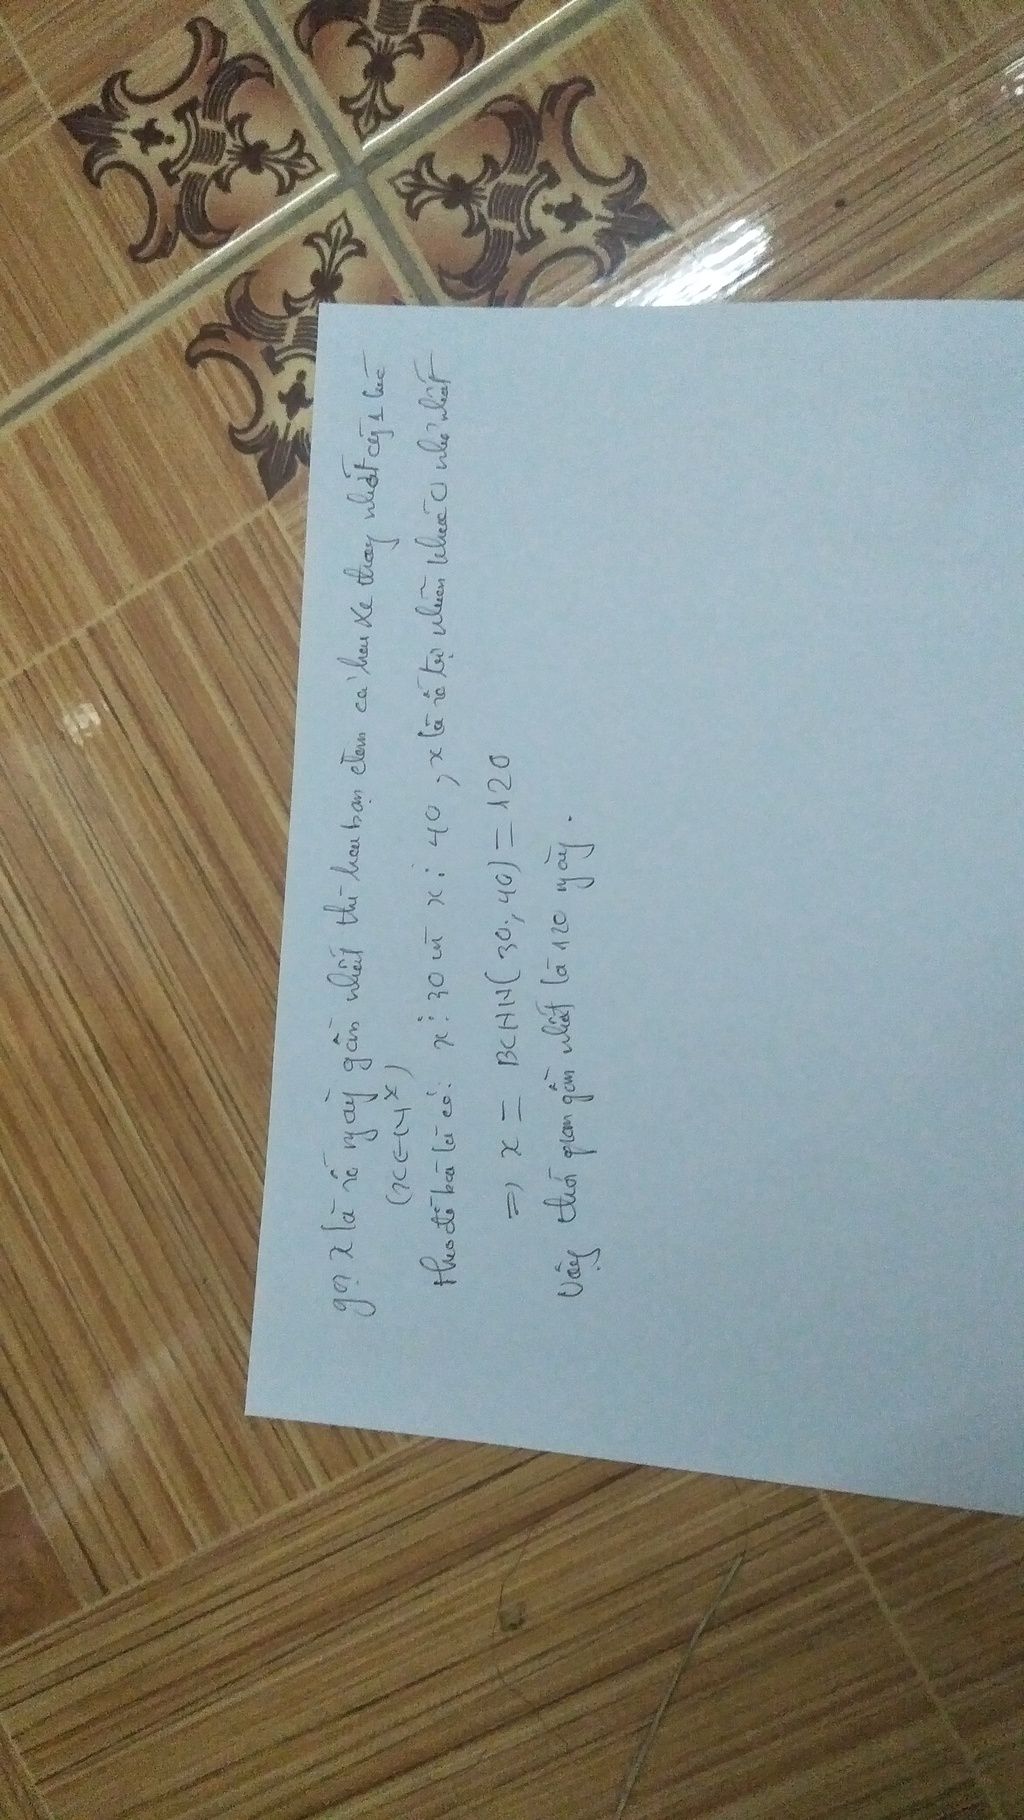 gọi x là số ngày gần nhất thì hai bạn đem cả hai xe thay nhớt cùng 1 lúc
(x∈N*)
theo đề bài ta có: x⋮30 và x⋮40, x là số tự nhiên khác 0 nhỏ nhất
=> x = BCNN(30, 40) = 120
Vậy thời gian gần nhất là 120 ngày.